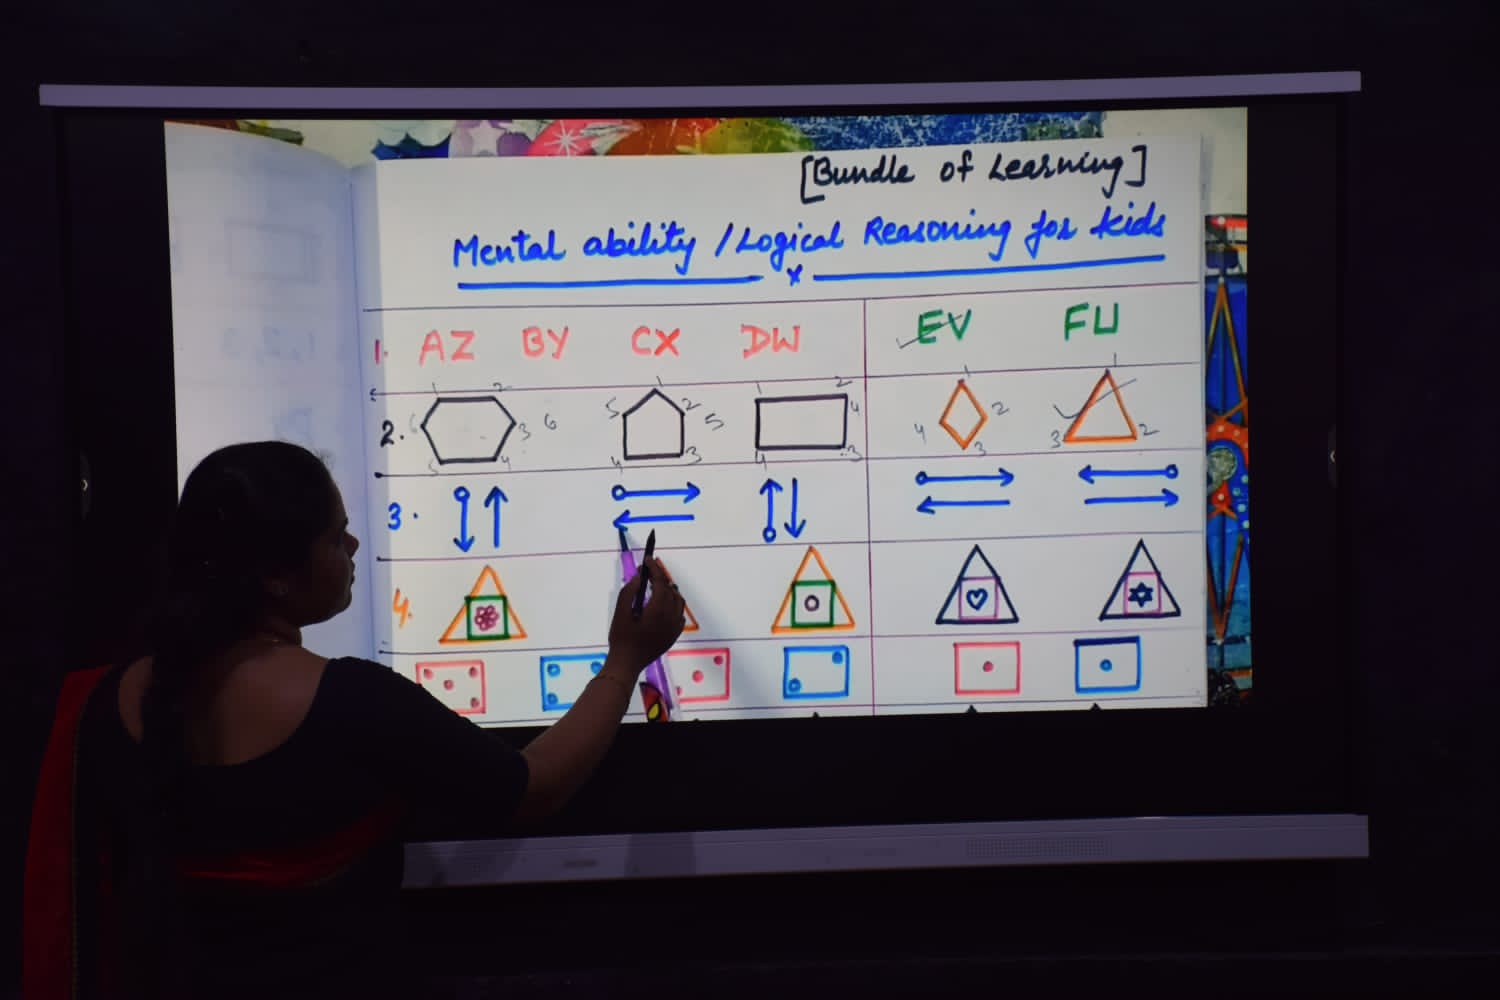 [Bundle of Learning]
Mental ability / Logical Reasoning for kids
x
1. AZ BY CX DW EV FU
2. 1 2 3 4 5 6 6 1 2 3 4 5 5 1 2 4 3 4 1 2 3 4 1 2 3
3.
4.